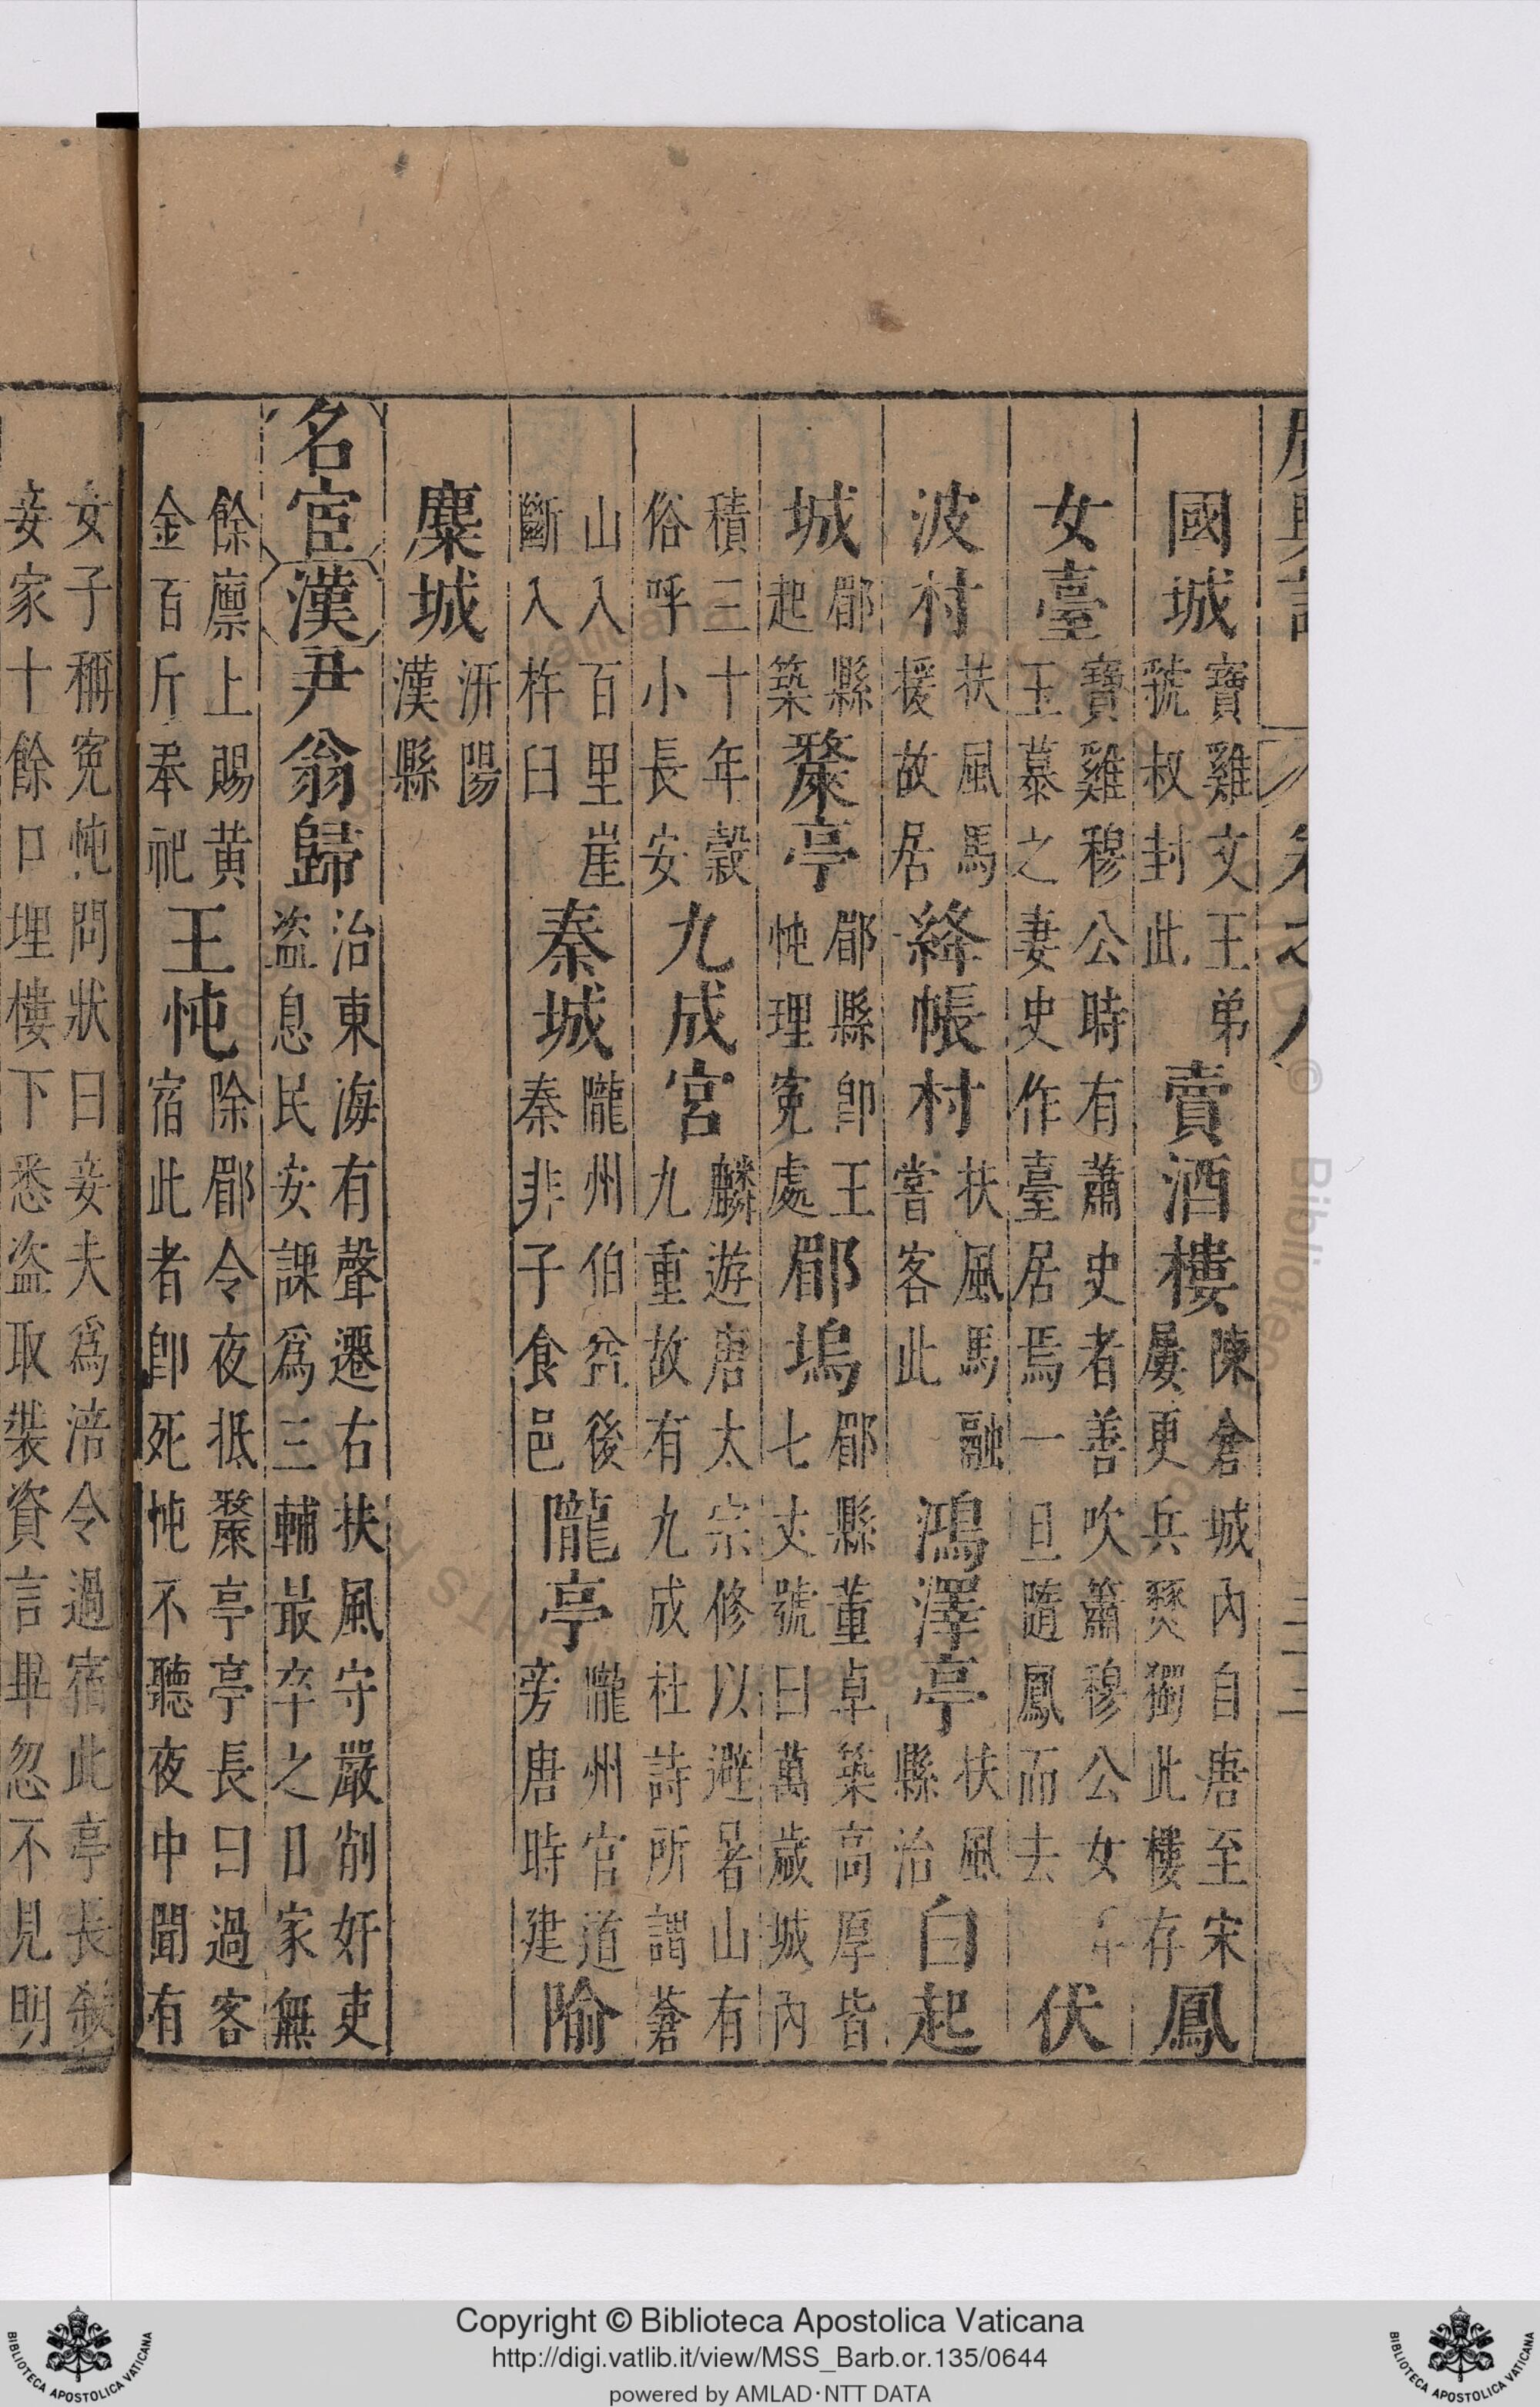 國城寶雞文王弟虢叔封此賣酒樓陳倉城內自唐至宋屢更兵燹獨此樓存鳳
女臺寶雞穆公時有蕭史者善吹簫穆公女玉慕之妻史作臺居焉一旦隨鳳而去伏
波村扶風馬援故居絳帳村扶風馬融嘗客此鴻澤亭扶風縣治白起
城郿縣起築斄亭郿縣卽王忳理寃處郿塢郿縣董卓築高厚皆七丈號曰萬歲城內
積三十年穀俗呼小長安九成宮麟遊唐太宗修以避暑山有九重故有九成杜詩所謂蒼
山入百里崖斷入杵臼秦城隴州伯益後秦非子食邑隴亭隴州官道旁唐時建隃
麋城汧陽漢縣
名宦漢尹翁歸治東海有聲遷右扶風守嚴削奸吏盜息民安課爲三輔最卒之日家無
餘廩上賜黃金百斤奉祀王忳除郿令夜抵斄亭亭長曰過客宿此者卽死忳不聽夜中聞有
女子稱寃忳問狀曰妾夫爲涪令過宿此亭長殺妾家十餘口埋樓下悉盜取裝資言畢忽不見明
Copyright © Biblioteca Apostolica Vaticana
http://digi.vatlib.it/view/MSS_Barb.or.135/0644
powered by AMLAD·NTT DATA
BIBLIOTECA APOSTOLICA VATICANA
BIBLIOTECA APOSTOLICA VATICANA